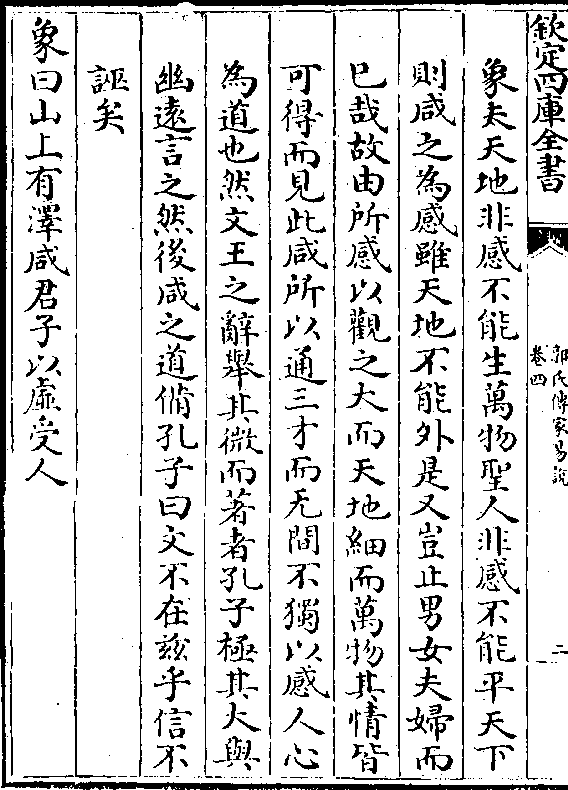 欽定四庫全書
郭氏傳家易說
卷四
二
象夫天地非感不能生萬物聖人非感不能平天下
則咸之為感雖天地不能外是又豈止男女夫婦而
已哉故由所感以觀之大而天地細而萬物其情皆
可得而見此咸所以通三才而无間不獨以感人心
為道也然文王之辭舉其微而著者孔子極其大與
幽遠言之然後咸之道備孔子曰文不在茲乎信不
誣矣
象曰山上有澤咸君子以虛受人